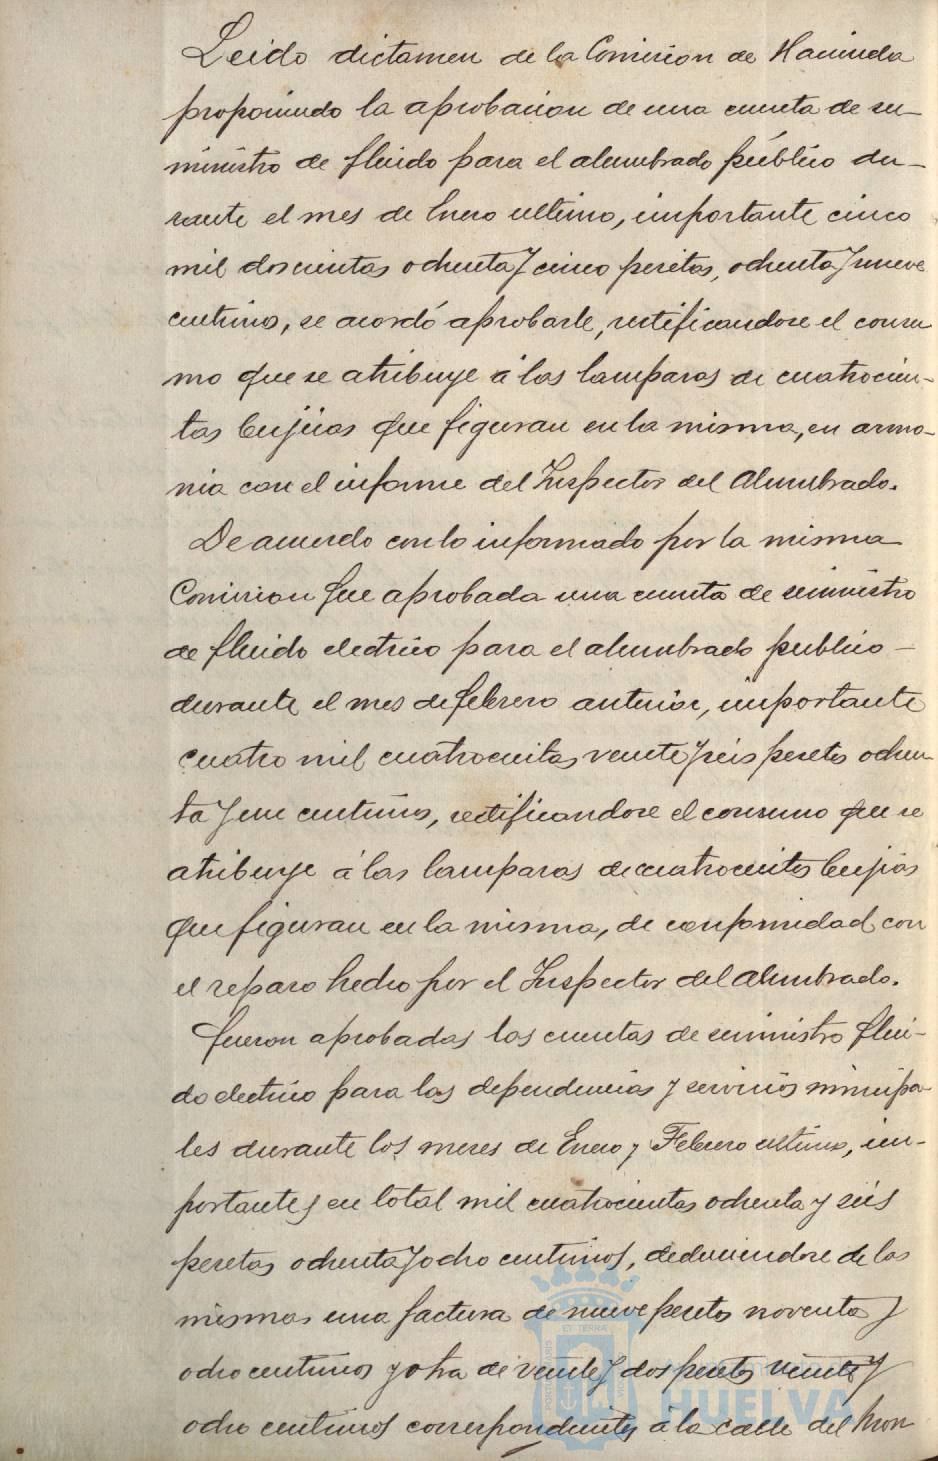 Leido dictamen de la Comision de Hacienda
proponiendo la aprobacion de una cuenta de su-
ministro de fluido para el alumbrado público du-
rante el mes de Enero ultimo, importante cinco
mil doscientas ochenta y cinco pesetas, ochenta y nueve
centimos, se acordó aprobarle, rectificandose el consu
mo que se atribuye á las lamparas de cuatrocien-
tas bujias que figuran en la misma, en armo-
nia con el informe del Inspector del Alumbrado.
De acuerdo con lo informado por la misma
Comision fue aprobada una cuenta de suministro
de fluido electrico para el alumbrado publico -
durante el mes de febrero anterior, importante
cuatro mil cuatrocientas veinte y seis pesetas ochen-
ta y un centimos, rectificandose el consumo que se
atribuye á las lamparas de cuatrocientas bujias
que figuran en la misma, de conformidad con
el reparo hecho por el Inspector del Alumbrado.
fueron aprobadas las cuentas de suministro flui-
do electrico para las dependencias y servicios municipa-
les durante los meses de Enero y Febrero ultimos, im-
portantes en total mil cuatrocientas ochenta y seis
pesetas ochenta y ocho centimos, deduciendose de las
mismas una factura de nueve pesetas noventa y
ocho centimos y otra de veinte y dos pesetas veinte y
ocho centimos correspondientes á la calle del Mon
HUELVA